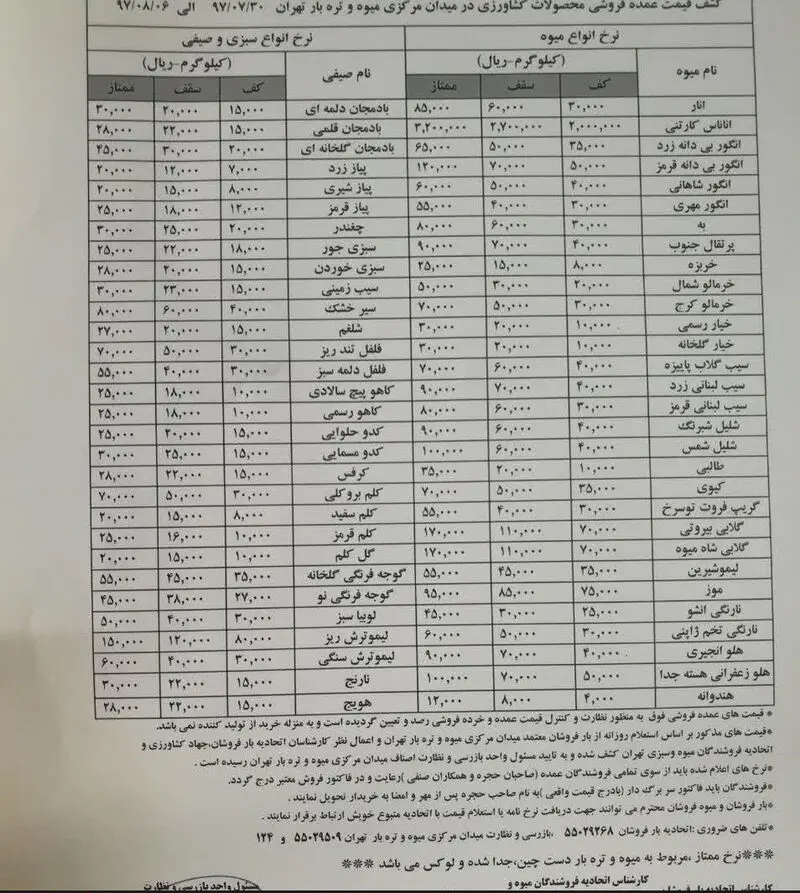 کشف قیمت عمده فروشی محصولات کشاورزی در میدان مرکزی میوه و تره بار تهران ۹۷/۰۷/۳۰ الی ۹۷/۰۸/۰۶
نرخ انواع میوه نرخ انواع سبزی و صیفی
نام میوه (کیلوگرم-ریال) نام صیفی (کیلوگرم-ریال)
کف سقف ممتاز کف سقف ممتاز
انار ۳۰,۰۰۰ ۶۰,۰۰۰ ۸۵,۰۰۰ بادمجان دلمه ای ۱۵,۰۰۰ ۲۰,۰۰۰ ۳۰,۰۰۰
اناناس کارتنی ۲,۰۰۰,۰۰۰ ۲,۷۰۰,۰۰۰ ۳,۲۰۰,۰۰۰ بادمجان قلمی ۱۵,۰۰۰ ۲۲,۰۰۰ ۲۸,۰۰۰
انگور بی دانه زرد ۳۵,۰۰۰ ۵۰,۰۰۰ ۶۵,۰۰۰ بادمجان گلخانه ای ۲۰,۰۰۰ ۳۰,۰۰۰ ۴۵,۰۰۰
انگور بی دانه قرمز ۵۰,۰۰۰ ۷۰,۰۰۰ ۱۲۰,۰۰۰ پیاز زرد ۷,۰۰۰ ۱۲,۰۰۰ ۲۰,۰۰۰
انگور شاهانی ۴۰,۰۰۰ ۵۰,۰۰۰ ۶۰,۰۰۰ پیاز شیری ۸,۰۰۰ ۱۵,۰۰۰ ۲۰,۰۰۰
انگور مهری ۳۰,۰۰۰ ۴۰,۰۰۰ ۵۵,۰۰۰ پیاز قرمز ۱۲,۰۰۰ ۱۸,۰۰۰ ۲۵,۰۰۰
به ۳۰,۰۰۰ ۶۰,۰۰۰ ۸۰,۰۰۰ چغندر ۲۰,۰۰۰ ۲۵,۰۰۰ ۳۰,۰۰۰
پرتقال جنوب ۴۰,۰۰۰ ۷۰,۰۰۰ ۹۰,۰۰۰ سبزی جور ۱۸,۰۰۰ ۲۲,۰۰۰ ۲۵,۰۰۰
خربزه ۸,۰۰۰ ۱۵,۰۰۰ ۲۵,۰۰۰ سبزی خوردن ۱۵,۰۰۰ ۲۰,۰۰۰ ۲۸,۰۰۰
خرمالو شمال ۲۰,۰۰۰ ۳۰,۰۰۰ ۵۰,۰۰۰ سیب زمینی ۱۵,۰۰۰ ۲۳,۰۰۰ ۳۰,۰۰۰
خرمالو کرج ۳۰,۰۰۰ ۵۰,۰۰۰ ۷۰,۰۰۰ سیر خشک ۴۰,۰۰۰ ۶۰,۰۰۰ ۸۰,۰۰۰
خیار رسمی ۱۰,۰۰۰ ۲۰,۰۰۰ ۳۰,۰۰۰ شلغم ۱۵,۰۰۰ ۲۰,۰۰۰ ۲۷,۰۰۰
خیار گلخانه ۱۰,۰۰۰ ۲۰,۰۰۰ ۳۰,۰۰۰ فلفل تند ریز ۳۰,۰۰۰ ۵۰,۰۰۰ ۷۰,۰۰۰
سیب گلاب پاییزه ۴۰,۰۰۰ ۶۰,۰۰۰ ۷۰,۰۰۰ فلفل دلمه سبز ۳۰,۰۰۰ ۴۰,۰۰۰ ۵۵,۰۰۰
سیب لبنانی زرد ۴۰,۰۰۰ ۷۰,۰۰۰ ۹۰,۰۰۰ کاهو پیچ سالادی ۱۰,۰۰۰ ۱۸,۰۰۰ ۲۵,۰۰۰
سیب لبنانی قرمز ۳۰,۰۰۰ ۶۰,۰۰۰ ۸۰,۰۰۰ کاهو رسمی ۱۰,۰۰۰ ۱۸,۰۰۰ ۲۵,۰۰۰
شلیل شبرنگ ۴۰,۰۰۰ ۶۰,۰۰۰ ۹۰,۰۰۰ کدو حلوایی ۱۵,۰۰۰ ۲۰,۰۰۰ ۲۵,۰۰۰
شلیل شمس ۴۰,۰۰۰ ۶۰,۰۰۰ ۱۰۰,۰۰۰ کدو مسمایی ۱۵,۰۰۰ ۲۵,۰۰۰ ۳۰,۰۰۰
طالبی ۱۰,۰۰۰ ۲۰,۰۰۰ ۳۵,۰۰۰ کرفس ۱۵,۰۰۰ ۲۲,۰۰۰ ۲۸,۰۰۰
کیوی ۳۵,۰۰۰ ۵۰,۰۰۰ ۷۰,۰۰۰ کلم بروکلی ۳۰,۰۰۰ ۵۰,۰۰۰ ۷۰,۰۰۰
گریپ فروت توسرخ ۳۰,۰۰۰ ۴۰,۰۰۰ ۵۵,۰۰۰ کلم سفید ۸,۰۰۰ ۱۵,۰۰۰ ۲۰,۰۰۰
گلابی بیروتی ۷۰,۰۰۰ ۱۱۰,۰۰۰ ۱۷۰,۰۰۰ کلم قرمز ۱۰,۰۰۰ ۱۶,۰۰۰ ۲۵,۰۰۰
گلابی شاه میوه ۷۰,۰۰۰ ۱۱۰,۰۰۰ ۱۷۰,۰۰۰ گل کلم ۱۰,۰۰۰ ۱۵,۰۰۰ ۲۰,۰۰۰
لیموشیرین ۳۵,۰۰۰ ۴۵,۰۰۰ ۵۵,۰۰۰ گوجه فرنگی گلخانه ۳۵,۰۰۰ ۴۵,۰۰۰ ۵۵,۰۰۰
موز ۷۵,۰۰۰ ۸۵,۰۰۰ ۹۵,۰۰۰ گوجه فرنگی نو ۲۷,۰۰۰ ۳۸,۰۰۰ ۴۵,۰۰۰
نارنگی انشو ۲۵,۰۰۰ ۳۰,۰۰۰ ۴۵,۰۰۰ لوبیا سبز ۳۰,۰۰۰ ۴۰,۰۰۰ ۵۰,۰۰۰
نارنگی تخم ژاپنی ۳۰,۰۰۰ ۵۰,۰۰۰ ۶۰,۰۰۰ لیموترش ریز ۸۰,۰۰۰ ۱۲۰,۰۰۰ ۱۵۰,۰۰۰
هلو انجیری ۴۰,۰۰۰ ۷۰,۰۰۰ ۹۰,۰۰۰ لیموترش سنگی ۳۰,۰۰۰ ۴۰,۰۰۰ ۶۰,۰۰۰
هلو زعفرانی هسته جدا ۵۰,۰۰۰ ۷۰,۰۰۰ ۱۰۰,۰۰۰ نارنج ۱۵,۰۰۰ ۲۲,۰۰۰ ۳۰,۰۰۰
هندوانه ۴,۰۰۰ ۸,۰۰۰ ۱۲,۰۰۰ هویج ۱۵,۰۰۰ ۲۲,۰۰۰ ۲۸,۰۰۰
* قیمت های عمده فروشی فوق به منظور نظارت و کنترل قیمت عمده و خرده فروشی رصد و تعیین گردیده است و به منزله خرید از تولید کننده نمی باشد.
*قیمت های مذکور بر اساس استعلام روزانه از بار فروشان معتمد میدان مرکزی میوه و تره بار تهران و اعمال نظر کارشناسان اتحادیه بار فروشان,جهاد کشاورزی و
اتحادیه فروشندگان میوه وسبزی تهران کشف شده و به تایید مسئول واحد بازرسی و نظارت اصناف میدان مرکزی میوه و تره بار تهران رسیده است .
*نرخ های اعلام شده باید از سوی تمامی فروشندگان عمده (صاحبان حجره و همکاران صنفی )رعایت و در فاکتور فروش معتبر درج گردد.
*فروشندگان باید فاکتور سر برگ دار (بادرج قیمت واقعی )به نام صاحب حجره پس از مهر و امضا به خریدار تحویل نمایند .
*بار فروشان و میوه فروشان محترم می توانند جهت دریافت نرخ نامه یا استعلام قیمت با اتحادیه متبوع خویش ارتباط برقرار نمایند .
*تلفن های ضروری :اتحادیه بار فروشان ۵۵۰۲۹۲۶۸ ،بازرسی و نظارت میدان مرکزی میوه و تره بار تهران ۵۵۰۲۹۵۰۹ و ۱۲۴
***نرخ ممتاز ,مربوط به میوه و تره بار دست چین,جدا شده و لوکس می باشد ***
کارشناس اتحادیه فروشندگان میوه و
کارشناس اتحادیه بار فروشان مسئول واحد بازرسی و نظارت